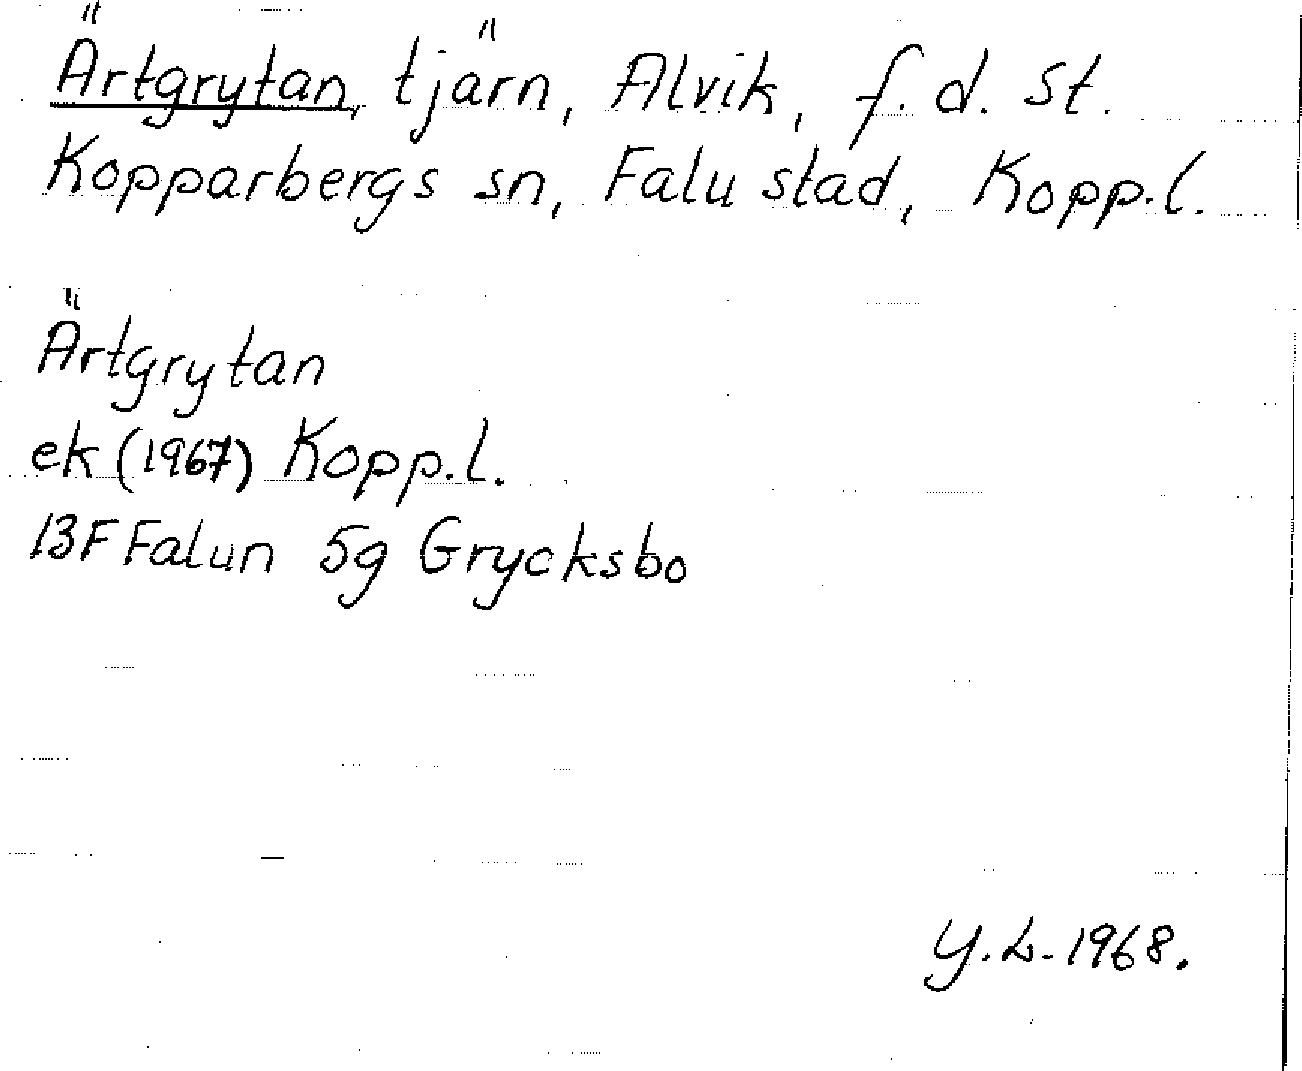 Ärtgrytan, tjärn, Alvik, f.d. St.
Kopparbergs sn, Falu stad, Kopp.l.
Ärtgrytan
ek (1967) Kopp.l.
13F Falun 5g Grycksbo
Y.L. 1968.